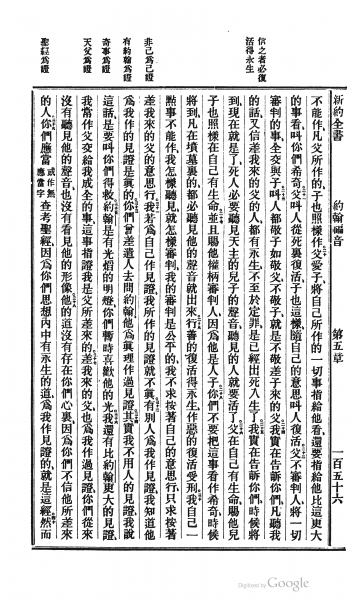 新約全書 約翰福音 第五章 一百五十六
信之者必復
活得永生
非己爲己證
有約翰爲證
奇事爲證
天父爲證
聖經爲證
不能作凡父所作的子也照樣作父愛子將自己所作的一切事指給他看還要指給他比這更大
的事看叫你們希奇父叫人從死裏復活子也這樣隨自己的意思叫人復活父不審判人將一切
審判的事全交與子叫人都敬子如敬父不敬子就是不敬差子來的父我實在告訴你們凡聽我
的話又信差我來的父的人都有永生不至於定罪是已經出死入生了我實在告訴你們時候將
到現在就是了死人必要聽見天主的兒子的聲音聽見的人就要活了父在自己有生命賜他兒
子也照樣在自己有生命並且賜他權柄審判人因爲他是人子你們不要把這事看作希奇時候
將到凡在墳墓裏的都必聽見他的聲音就出來行善的復活得永生作惡的復活受刑我自己一
點事不能作我怎樣聽見就怎樣審判我的審判是公平的我不求按著自己的意思行只求按著
差我來的父的意思行我若爲自己作見證我所作的見證就不眞有別人爲我作見證我知道他
爲我作的見證是眞的你們曾差遣人去問約翰他爲眞理作過見證其實我不用人的見證我說
這話是要叫你們得救約翰是有光焰的明燈你們暫時喜歡他的光我還有比約翰更大的見證
我當作父交給我成全的事這事指證我是父所差來的差我來的父也爲我作過見證你們從來
沒有聽見他的聲音也沒有看見他的形像他的道沒有存在你們心裏因爲你們不信他所差來
的人你們應當或作無應當字查考聖經因爲你們思想內中有永生的道爲我作見證的就是這經然而
Digitized by Google